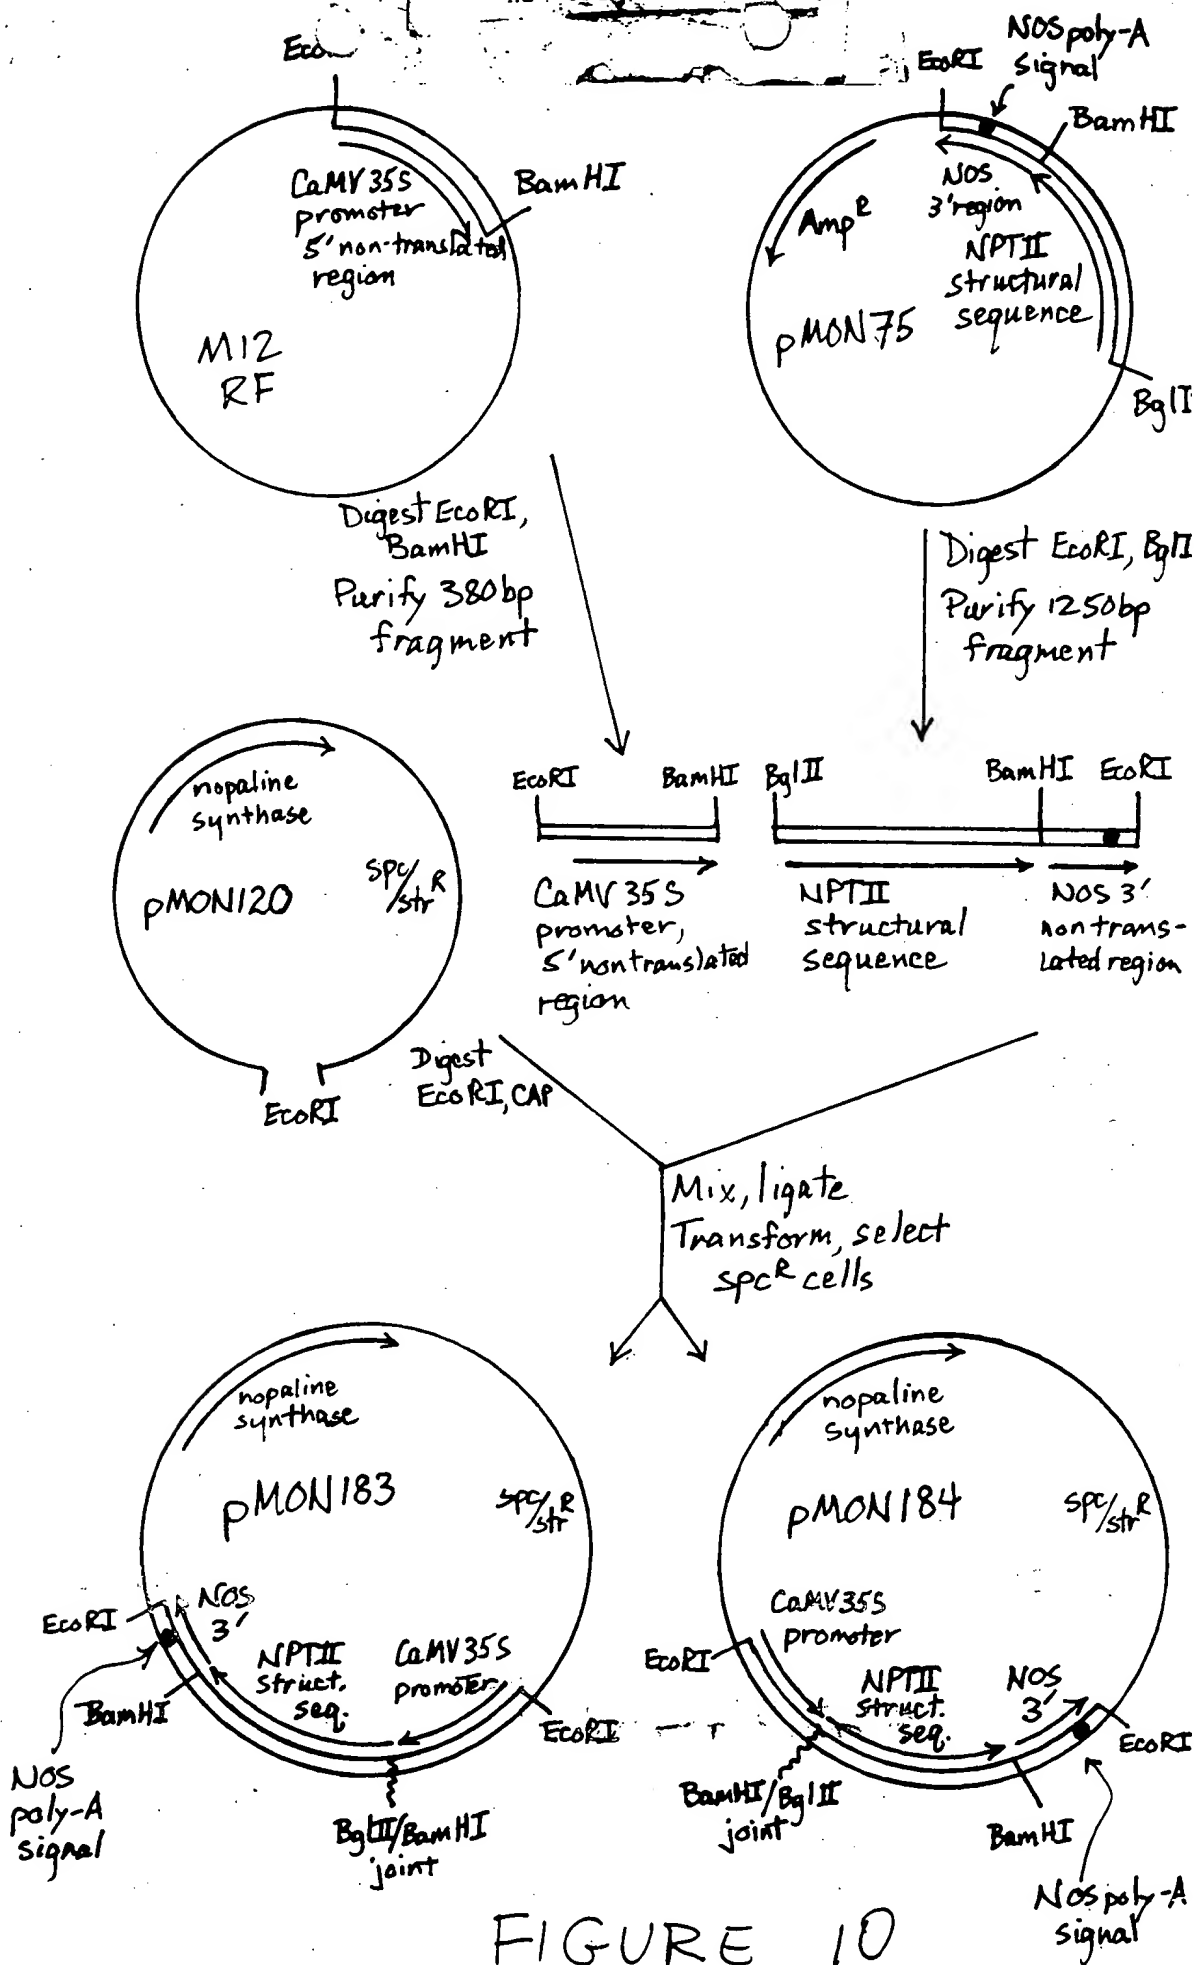 EcoRI
NOS poly-A
signal
BamHI
CaMV 35S
promoter
5' non-translated
region
BamHI
M12
RF
Amp^R
NOS
3' region
NPTII
structural
sequence
pMON75
Digest EcoRI,
BamHI
Purify 380bp
fragment
Digest EcoRI, BglII
Purify 1250bp
fragment
nopaline
synthase
pMON120
spc/str^R
EcoRI
EcoRI
BamHI
BglII
BamHI
EcoRI
CaMV 35S
promoter,
5' nontranslated
region
NPTII
structural
sequence
NOS 3'
nontrans-
lated region
Digest
EcoRI, CAP
Mix, ligate
Transform, select
spc^R cells
nopaline
synthase
pMON183
spc/str^R
EcoRI
NOS
3'
NPTII
struct.
seq.
CaMV35S
promoter
BamHI
EcoRI
NOS
poly-A
signal
BglII/BamHI
joint
nopaline
synthase
pMON184
spc/str^R
CaMV35S
promoter
EcoRI
NPTII
struct.
seq.
NOS
3'
EcoRI
BamHI/BglII
joint
BamHI
NOS poly-A
signal
FIGURE 10